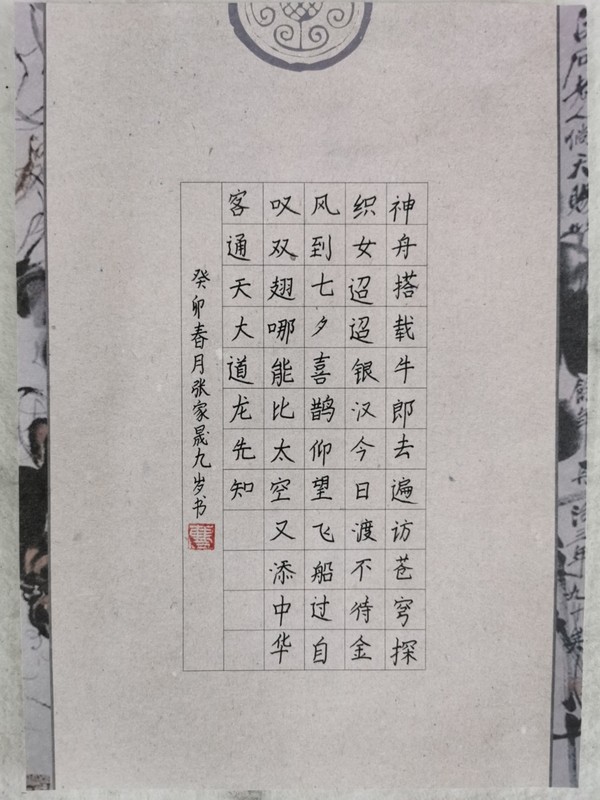 神舟搭载牛郎去遍访苍穹探
织女迢迢银汉今日渡不待金
风到七夕喜鹊仰望飞船过自
叹双翅哪能比太空又添中华
客通天大道龙先知
癸卯春月张家晟九岁书